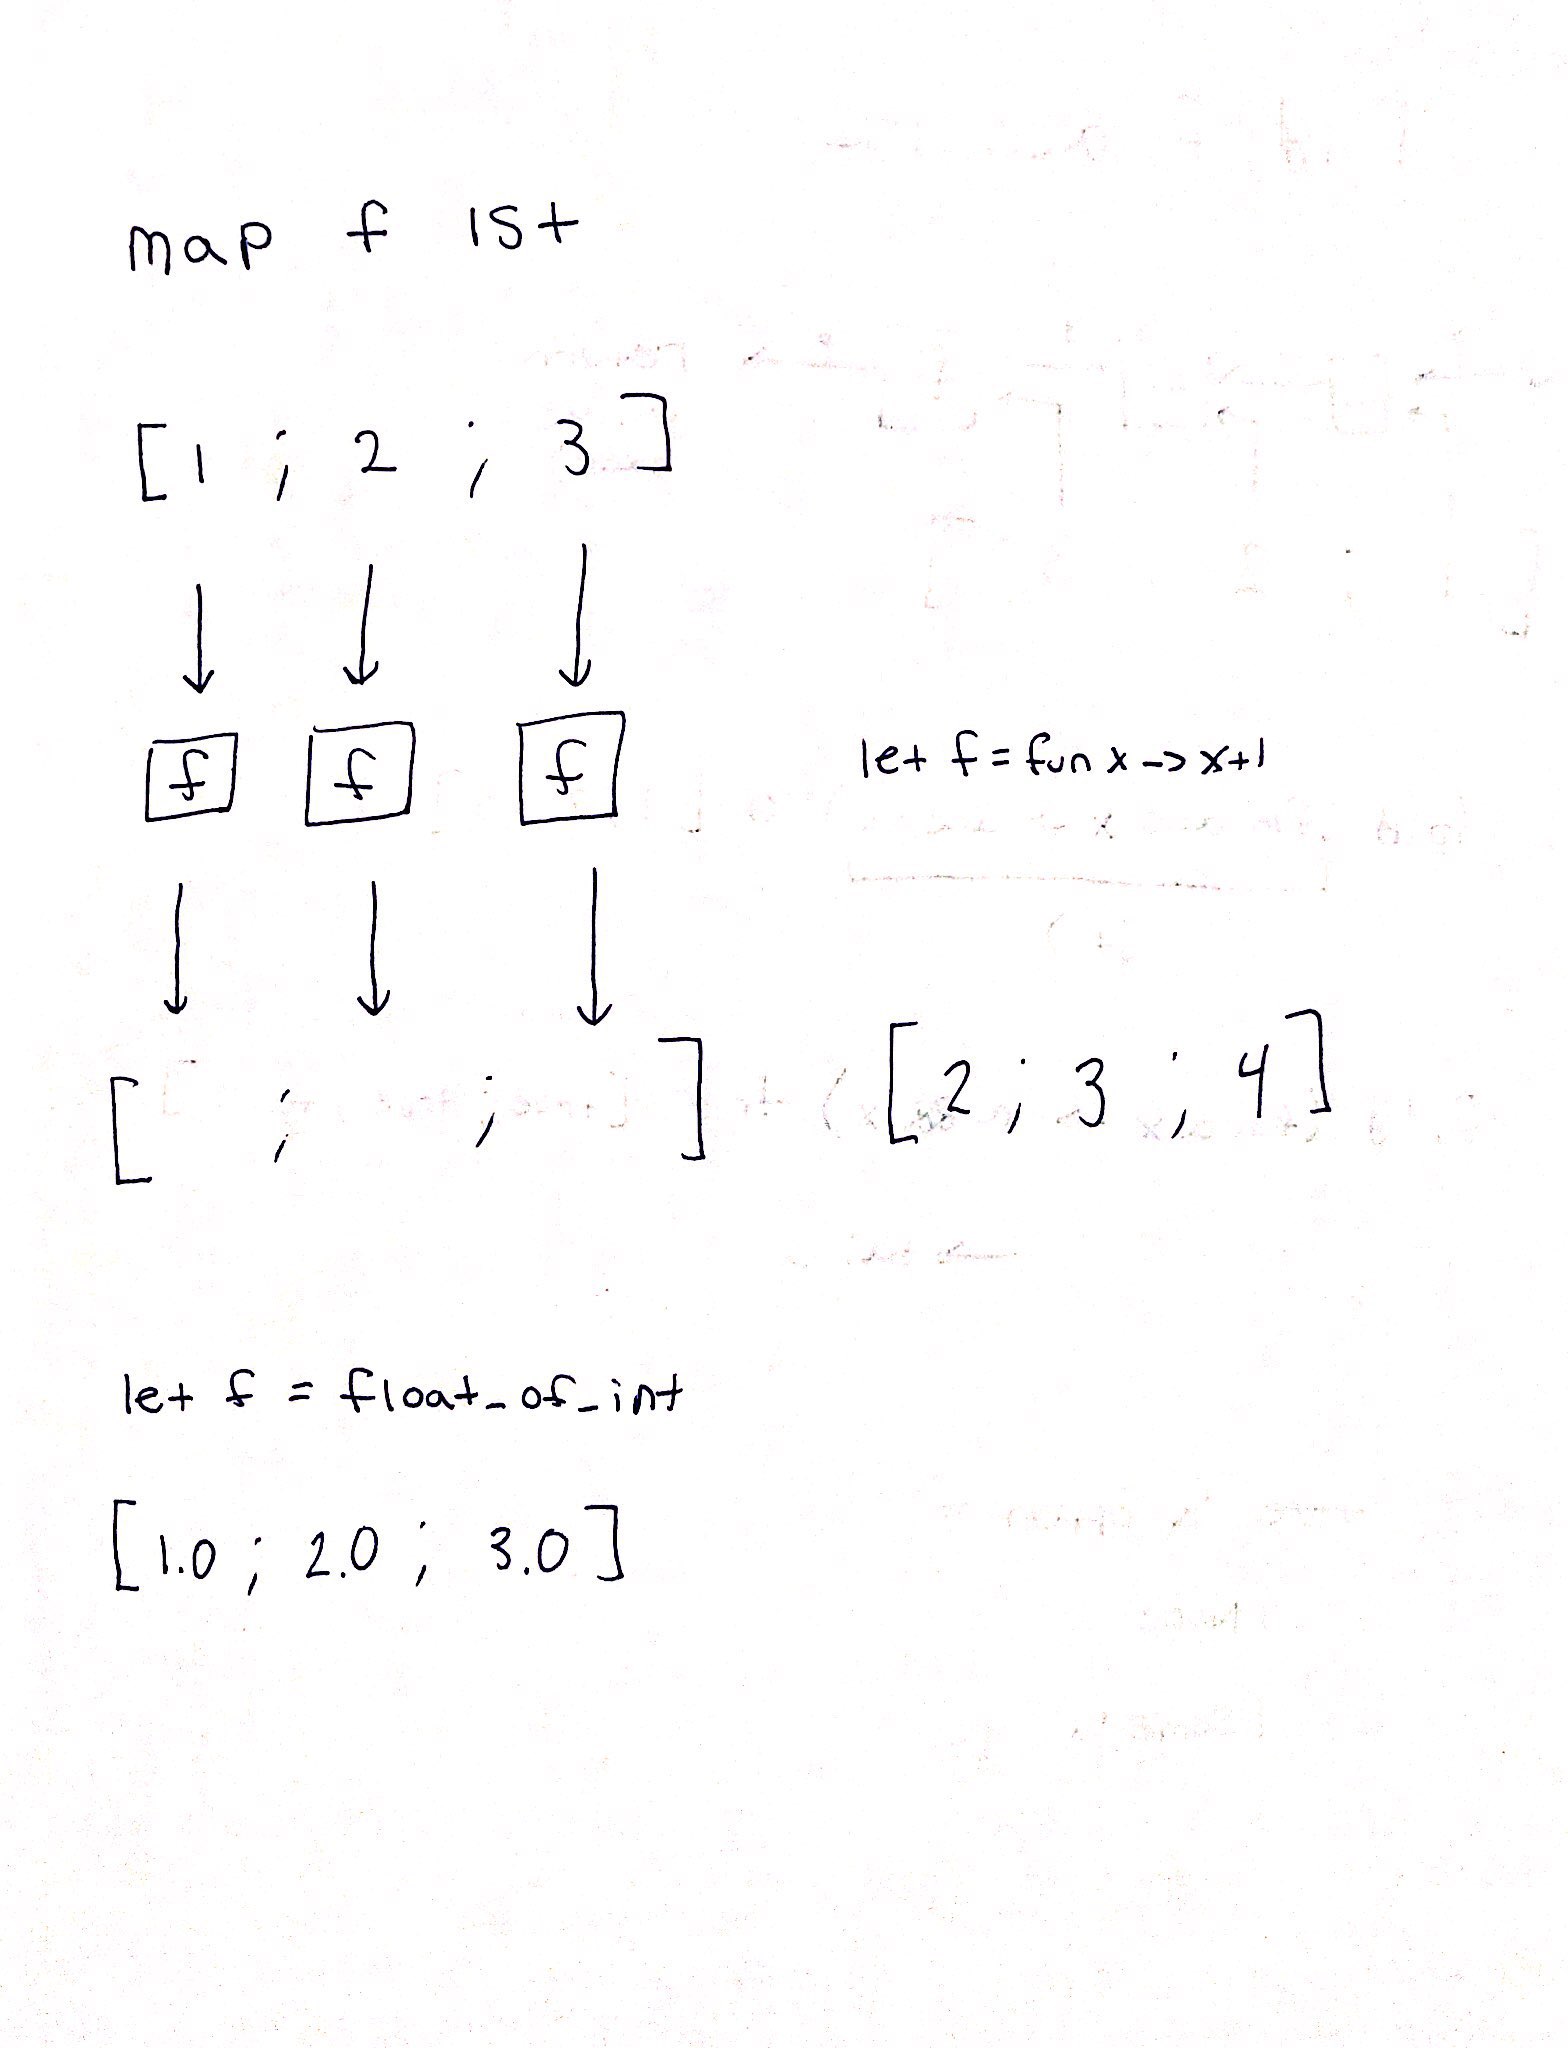 map f lst
[1 ; 2 ; 3]
f f f
let f = fun x -> x+1
[ ; ; ]
[2 ; 3 ; 4]
let f = float_of_int
[1.0 ; 2.0 ; 3.0]